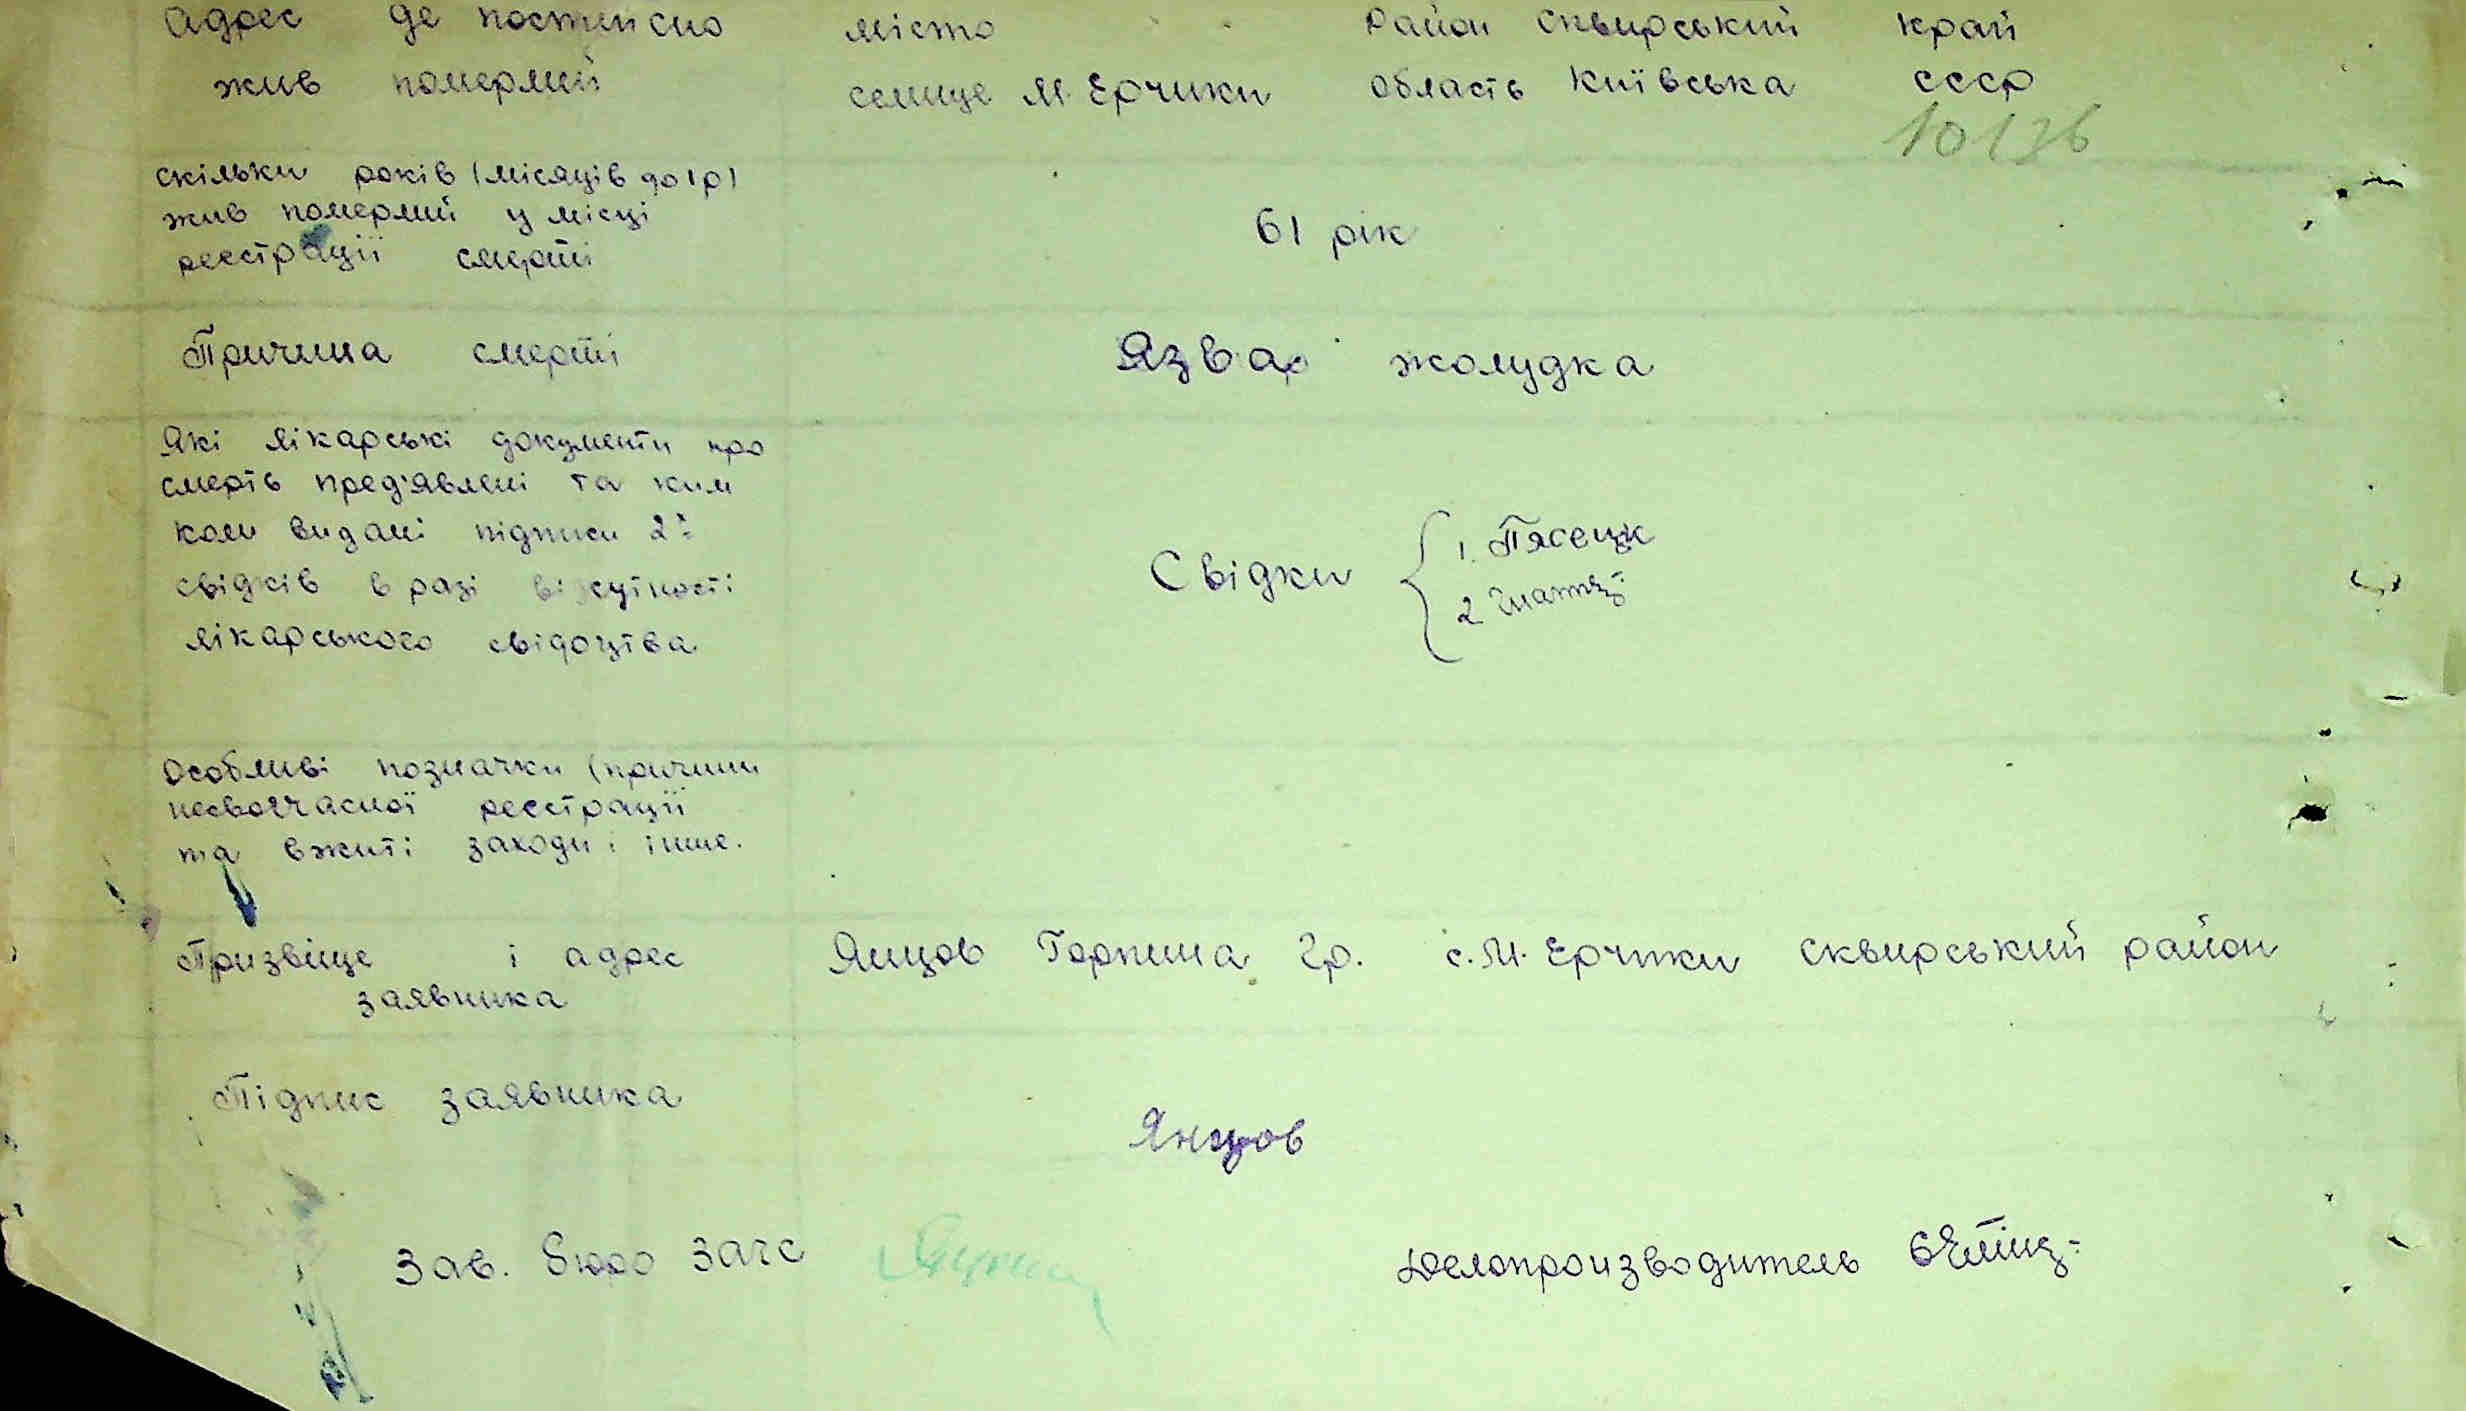 Адрес де постійно місто Район Сквирський край
жив померлий селище М. Ерчики область Київська СССР
скільки років (місяців до 1 р)
жив померлий у місці
реєстрації смерті
61 рік
Причина смерті Язва жолудка
Які лікарські документи про
смерть пред'явлені та ким
коли видані підписи 2х
свідків в разі відсутності
лікарського свідоцтва
Свідки
1. Пясецк
2
Особливі позначки (причини
несвоєчасної реєстрації
та вжиті заходи і інше.
Призвіще і адрес Янцов Горпина Гр. с. М. Ерчики Сквирський район
заявника
Підпис заявника
Янцов
Зав. Бюро Загс Делопроизводитель